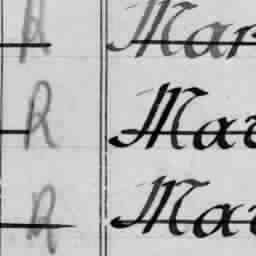 R Mar
R Mar
R Mar